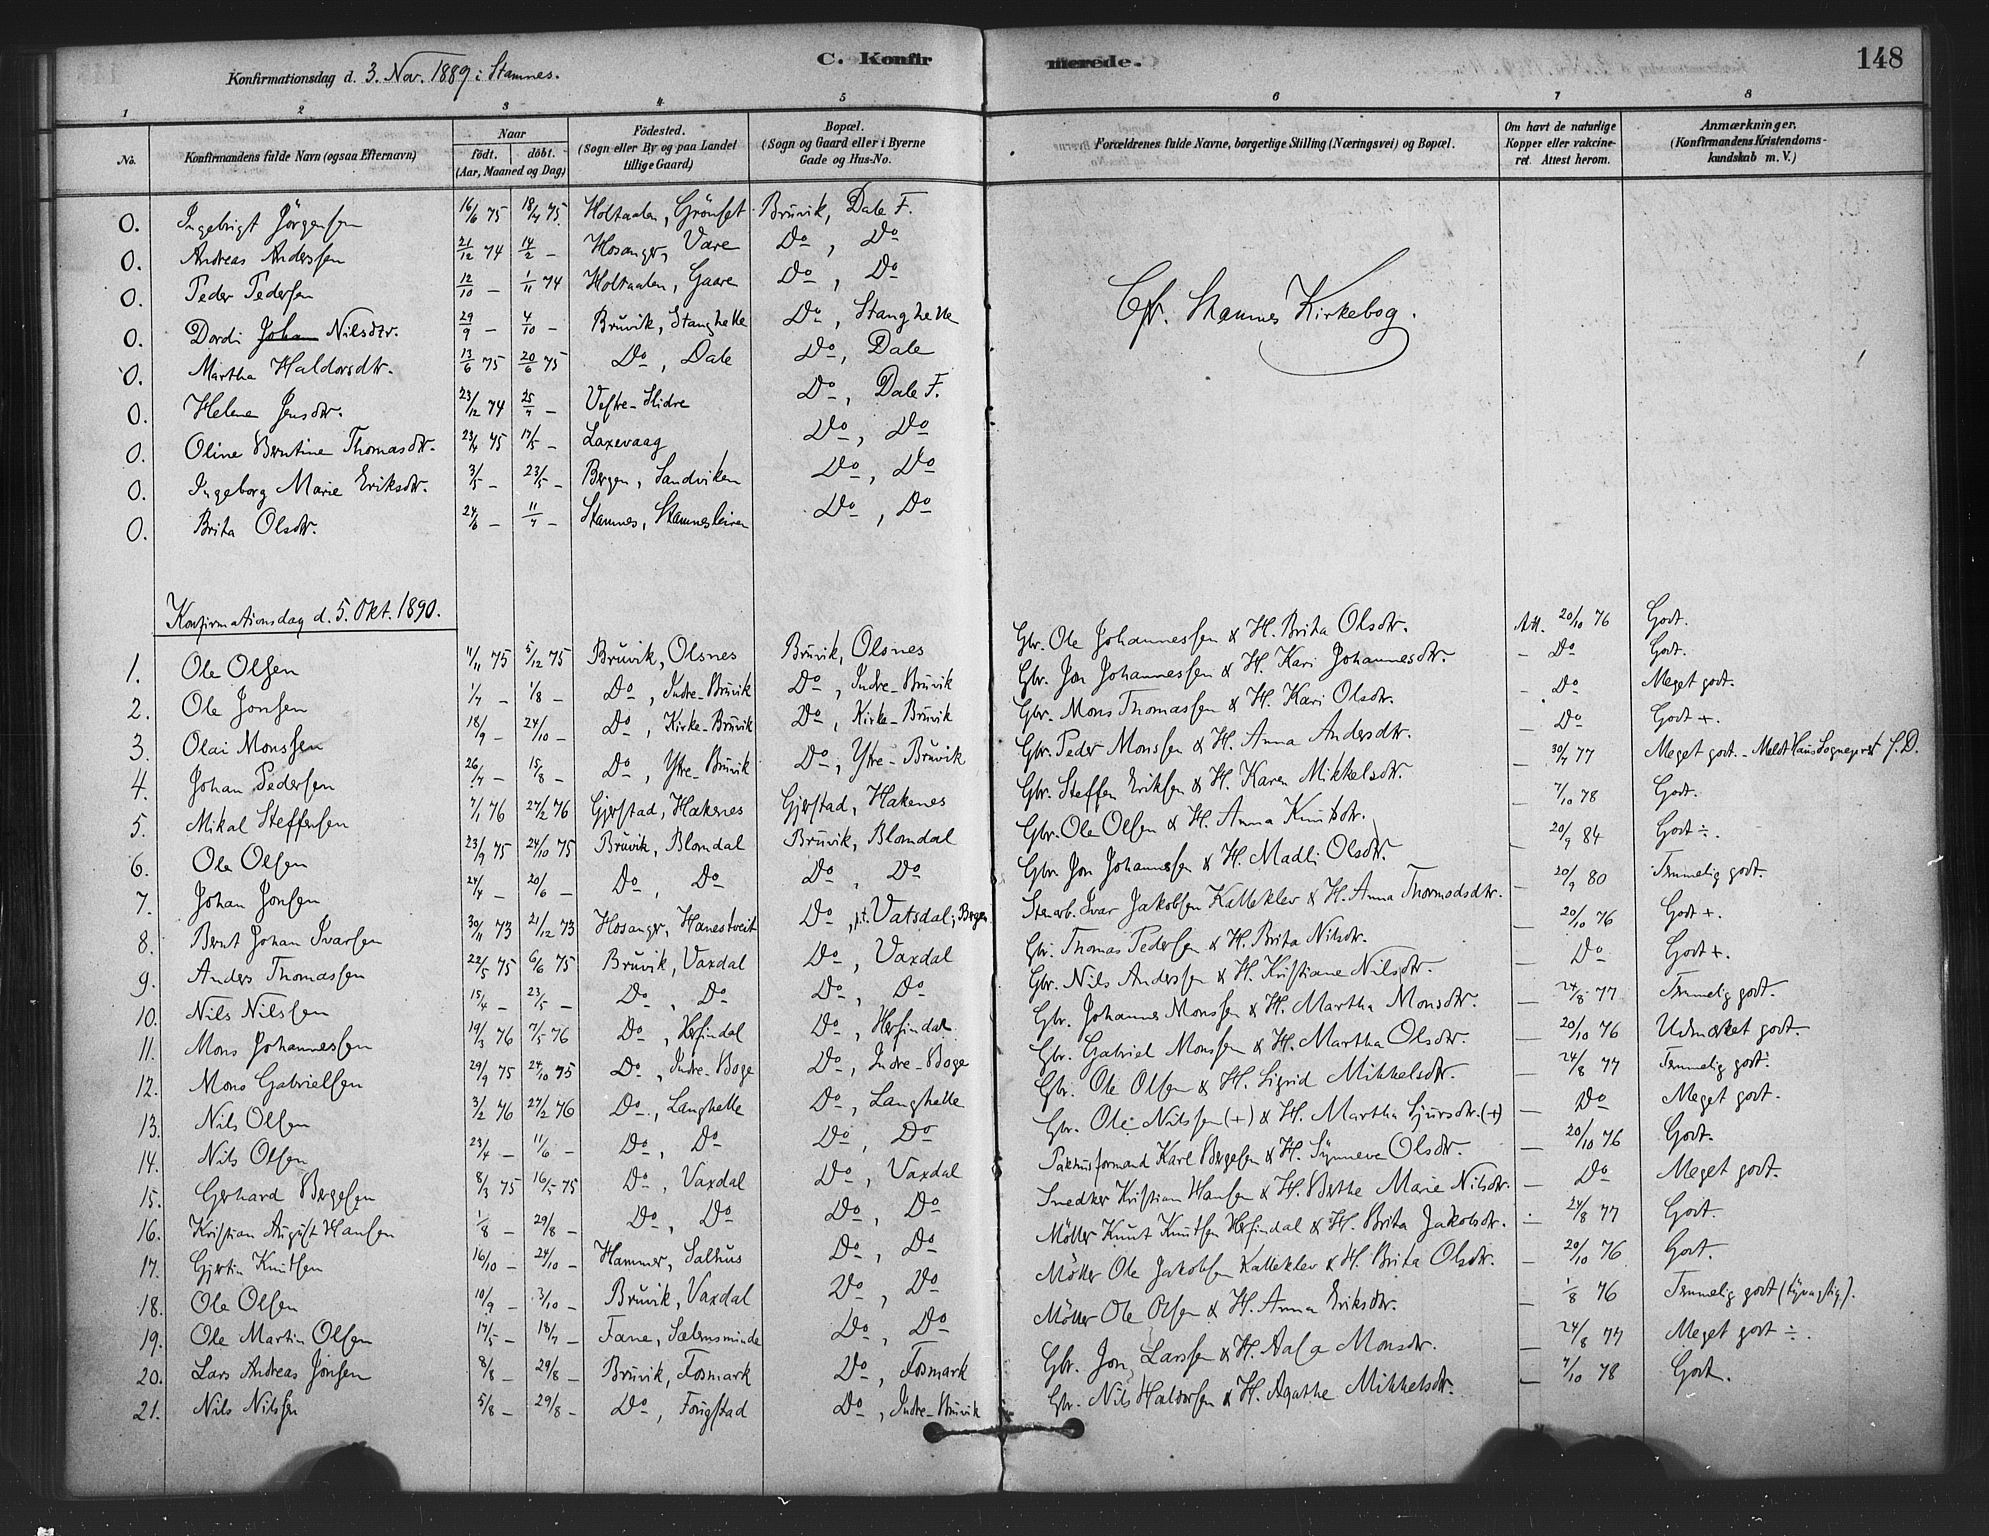 Konfirmationsdag d. 3. Nov. 1889 i Stamnes.
C. Konfirmerede.
148
1 2 3 4 5 6 7 8
No.
Konfirmandens fulde Navn (ogsaa Efternavn)
Naar
födt. döbt.
(Aar, Maaned og Dag)
Födested.
(Sogn eller By og paa Landet
tillige Gaard)
Bopæl.
(Sogn og Gaard eller i Byerne
Gade og Hus-No.
Forældrenes fulde Navne, borgerlige Stilling (Næringsvei) og Bopæl.
Om havt de naturlige
Kopper eller vakcine-
ret. Attest herom.
Anmærkninger.
(Konfirmandens Kristendoms-
kundskab m. V.)
0. Ingebrigt Jörgensen 16/6 75 18/7 75 Holtaalen, Grönset Bruvik, Dale F.
0. Andreas Anderssen 21/12 74 14/2 – Hosanger, Vare Do, Do
0. Peder Pedersen 12/10 – 1/11 74 Holtaalen, Gaare Do, Do
0. Dordi Johan Nilsdtr. 29/9 – 4/10 – Bruvik, Stanghelle Do, Stanghelle
0. Martha Haldorsdtr. 13/6 75 20/6 75 Do, Dale Do, Dale
0. Helene Jensdtr. 23/12 74 25/7 – Vestre-Slidre Do, Dale F.
0. Oline Berntine Thomasdtr. 23/4 75 17/5 – Laxevaag Do, Do
0. Ingeborg Marie Eriksdtr. 3/5 – 23/5 – Bergen, Sandviken Do, Do
0. Brita Olsdtr. 24/6 – 11/7 – Stamnes, Stamnesleiren Do, Do
Cfr. Stamnes Kirkebog.
Konfirmationsdag d. 5. Okt. 1890.
1. Ole Olsen 11/11 75 5/12 75 Bruvik, Olsnes Bruvik, Olsnes Gbr. Ole Johannessen & H. Brita Olsdtr. Att. 20/10 76 Godt.
2. Ole Jonsen 1/7 – 1/8 – Do, Indre-Bruvik Do, Indre-Bruvik Gbr. Jon Johannessen & H. Kari Johannesdtr. – Do Godt.
3. Olai Monssen 18/9 – 24/10 – Do, Kirke-Bruvik Do, Kirke-Bruvik Gbr. Mons Thomassen & H. Kari Olsdtr. – Do Meget godt.
4. Johan Pedersen 26/7 – 15/8 – Do, Ytre-Bruvik Do, Ytre-Bruvik Gbr. Peder Monssen & H. Anna Andersdtr. – Do Godt +.
5. Mikal Steffensen 7/1 76 27/2 76 Gjerstad, Hækenes Gjerstad, Hakenes Gbr. Steffen Eriksen & H. Karen Mikkelsdtr. – 30/7 77 Meget godt. – Meldt Haus Sogneprest s. D.
6. Ole Olsen 23/9 75 24/10 75 Bruvik, Blomdal Bruvik, Blomdal Gbr. Ole Olsen & H. Anna Knutsdtr. – 7/10 78 Godt.
7. Johan Jonsen 24/4 – 20/6 – Do, Do Do, Do Gbr. Jon Johannessen & H. Madli Olsdtr. – 20/9 84 Godt ÷.
8. Bernt Johan Ivarsen 30/11 73 21/12 73 Hosanger, Hanestveit Do, p.t. Vatsdal, Bergen Stenarb. Ivar Jakobsen Kalleklev & H. Anna Thormodsdtr. – 20/9 80 Temmelig godt.
9. Anders Thomassen 22/5 75 6/6 75 Bruvik, Vaxdal Do, Vaxdal Gbr. Thomas Pedersen & H. Brita Nilsdtr. – 20/10 76 Godt +.
10. Nils Nilssen 15/4 – 23/5 – Do, Do Do, Do Gbr. Nils Anderssen & H. Kristiane Nilsdtr. – Do Godt +.
11. Mons Johannessen 14/3 76 7/5 76 Do, Herfindal Do, Herfindal Gbr. Johannes Monssen & H. Martha Monsdtr. – 24/8 77 Temmelig godt.
12. Mons Gabrielsen 29/9 75 24/10 75 Do, Indre-Boge Do, Indre-Boge Gbr. Gabriel Monssen & H. Martha Olsdtr. – 20/10 76 Udmærket godt.
13. Nils Olsen 3/2 76 27/2 76 Do, Langhelle Do, Langhelle Gbr. Ole Olsen & H. Sigrid Mikkelsdtr. – 24/8 77 Temmelig godt.
14. Nils Olsen 23/4 – 11/6 – Do, Do Do, Do Gbr. Ole Nilssen (+) & H. Martha Sjursdtr. (+) – Do Meget godt.
15. Gerhard Bergesen 8/3 75 16/5 75 Do, Vaxdal Do, Vaxdal Pakhusformand Karl Bergesen & H. Synneve Olsdtr. – 20/10 76 Godt.
16. Kristian August Hansen 1/8 – 29/8 – Do, Do Do, Do Snedker Kristian Hansen & H. Berthe Marie Nilsdtr. – Do Meget godt.
17. Gjertin Knutsen 16/10 – 24/10 – Hammer, Salhus Do, Do Möller Knut Knutsen Herfindal & H. Brita Jakobsdtr. – 24/8 77 Godt.
18. Ole Olsen 10/9 – 3/10 – Bruvik, Vaxdal Do, Do Möller Ole Jakobsen Kalleklev & H. Brita Olsdtr. – 20/10 76 Godt.
19. Ole Martin Olsen 17/5 – 18/7 – Fane, Sælensminde Do, Do Möller Ole Olsen & H. Anna Eriksdtr. – 1/8 76 Temmelig godt
20. Lars Andreas Jonsen 8/8 – 29/8 – Bruvik, Fosmark Do, Fosmark Gbr. Jon Larssen & H. Aasa Monsdtr. – 24/8 77 Meget godt ÷.
21. Nils Nilssen 5/8 – 29/8 – Do, Fougstad Do, Indre-Bruvik Gbr. Nils Haldorsen & H. Agathe Mikkelsdtr. – 7/10 78 Godt.